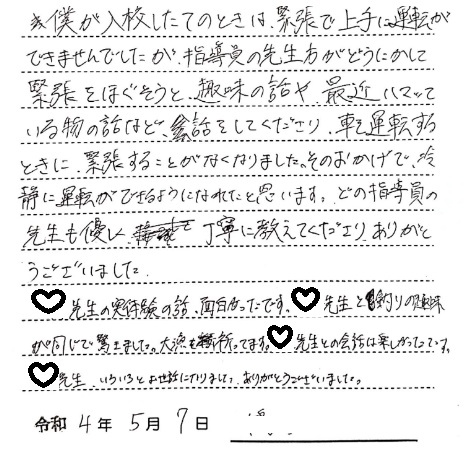 僕が入校したてのときは、緊張で上手に運転が
できませんでしたが、指導員の先生方がどうにかして
緊張をほぐそうと、趣味の話や、最近ハマって
いる物の話など、会話をしてくださり、車を運転する
ときに、緊張することがなくなりました。そのおかげで、冷
静に運転ができるようになれたと思います。どの指導員の
先生も優しく 丁寧に教えてくださり、ありがと
うございました。
先生の実体験の話、面白かったです。 先生と釣りの趣味
が同じで驚きました。大漁を祈ってます。 先生との会話は楽しかったです。
先生、いろいろとお世話になりました。ありがとうございました。
令和 4 年 5 月 7 日